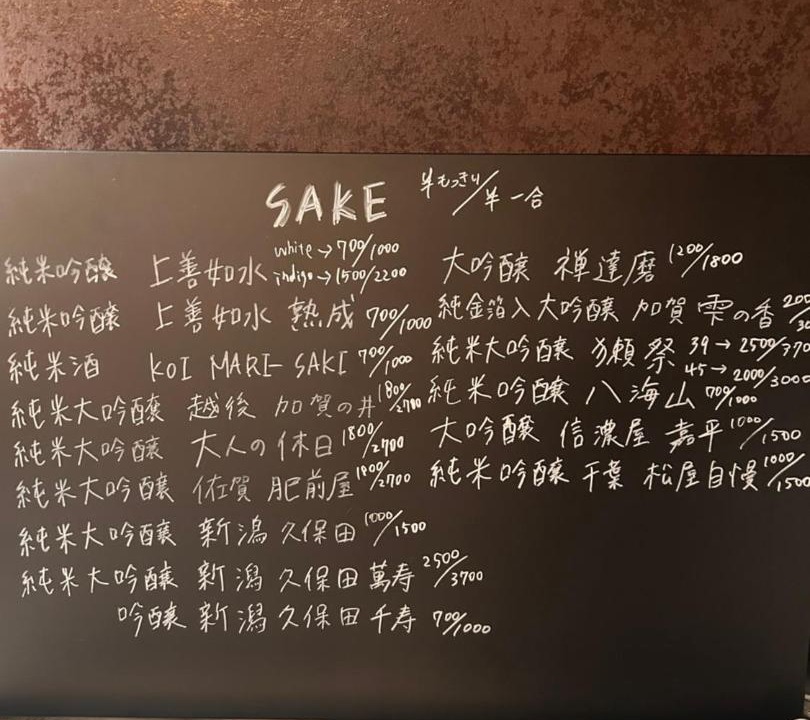 SAKE
半もっきり/半一合
純米吟醸 上善如水 white→700/1000
indigo→1500/2200
純米吟醸 上善如水 熟成 700/1000
純米酒 KOI MARI-SAKI 700/1000
純米大吟醸 越後 加賀の井 1800/2700
純米大吟醸 大人の休日 1800/2700
純米大吟醸 佐賀 肥前屋 1800/2700
純米大吟醸 新潟 久保田 1000/1500
純米大吟醸 新潟 久保田 萬寿 2500/3700
吟醸 新潟 久保田 千寿 700/1000
大吟醸 禅達磨 1200/1800
純金箔入大吟醸 加賀 雫の香
純米大吟醸 獺祭 39→2500/370
45→2000/3000
純米吟醸 八海山 700/1000
大吟醸 信濃屋 嘉平 1000/1500
純米吟醸 千葉 松屋自慢 1000/1500